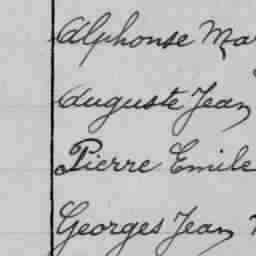 Alphonse Ma
Auguste Jean
Pierre Emile
Georges Jean